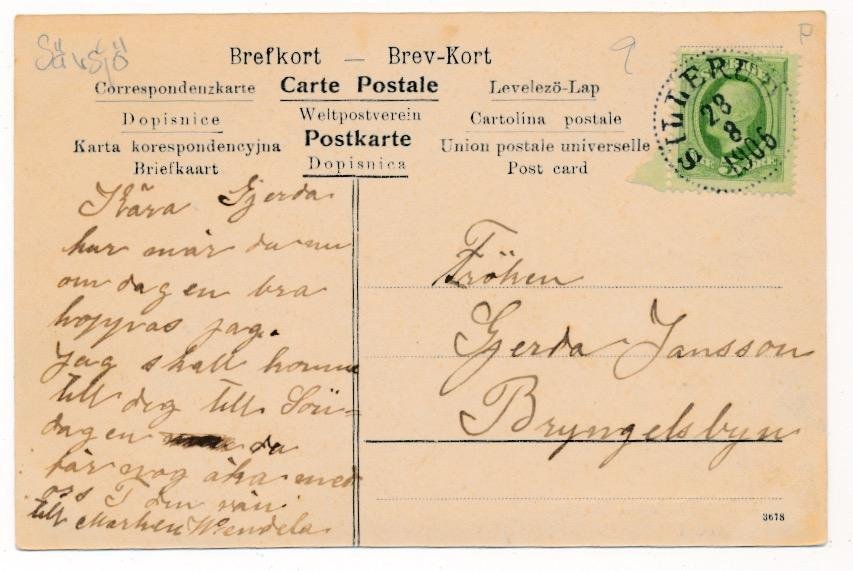 Sävsjö
9
P
Brefkort — Brev-Kort
Correspondenzkarte Carte Postale Levelezö-Lap
Dopisnice Weltpostverein Cartolina postale
Karta korespondencyjna Postkarte Union postale universelle
Briefkaart Dopisnica Post card
SILLERUD
28
8
1906
Kära Gjerda
hur mår du nu
om dagen bra
hoppas jag.
Jag skall komme
till dig till Sön-
dagen da
får nog åka med
oss T din vän
till Marken Wendela
Fröken
Gjerda Jansson
Bryngelsbyn
3678